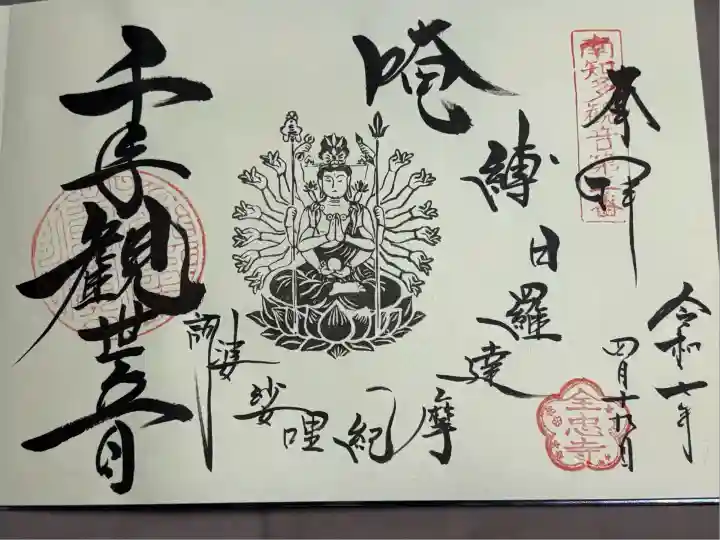 奉拝
南知多観音第
令和七年
四月十九日
全忠寺
唵
縛日羅達
摩紇哩
娑婆訶
千手観世音